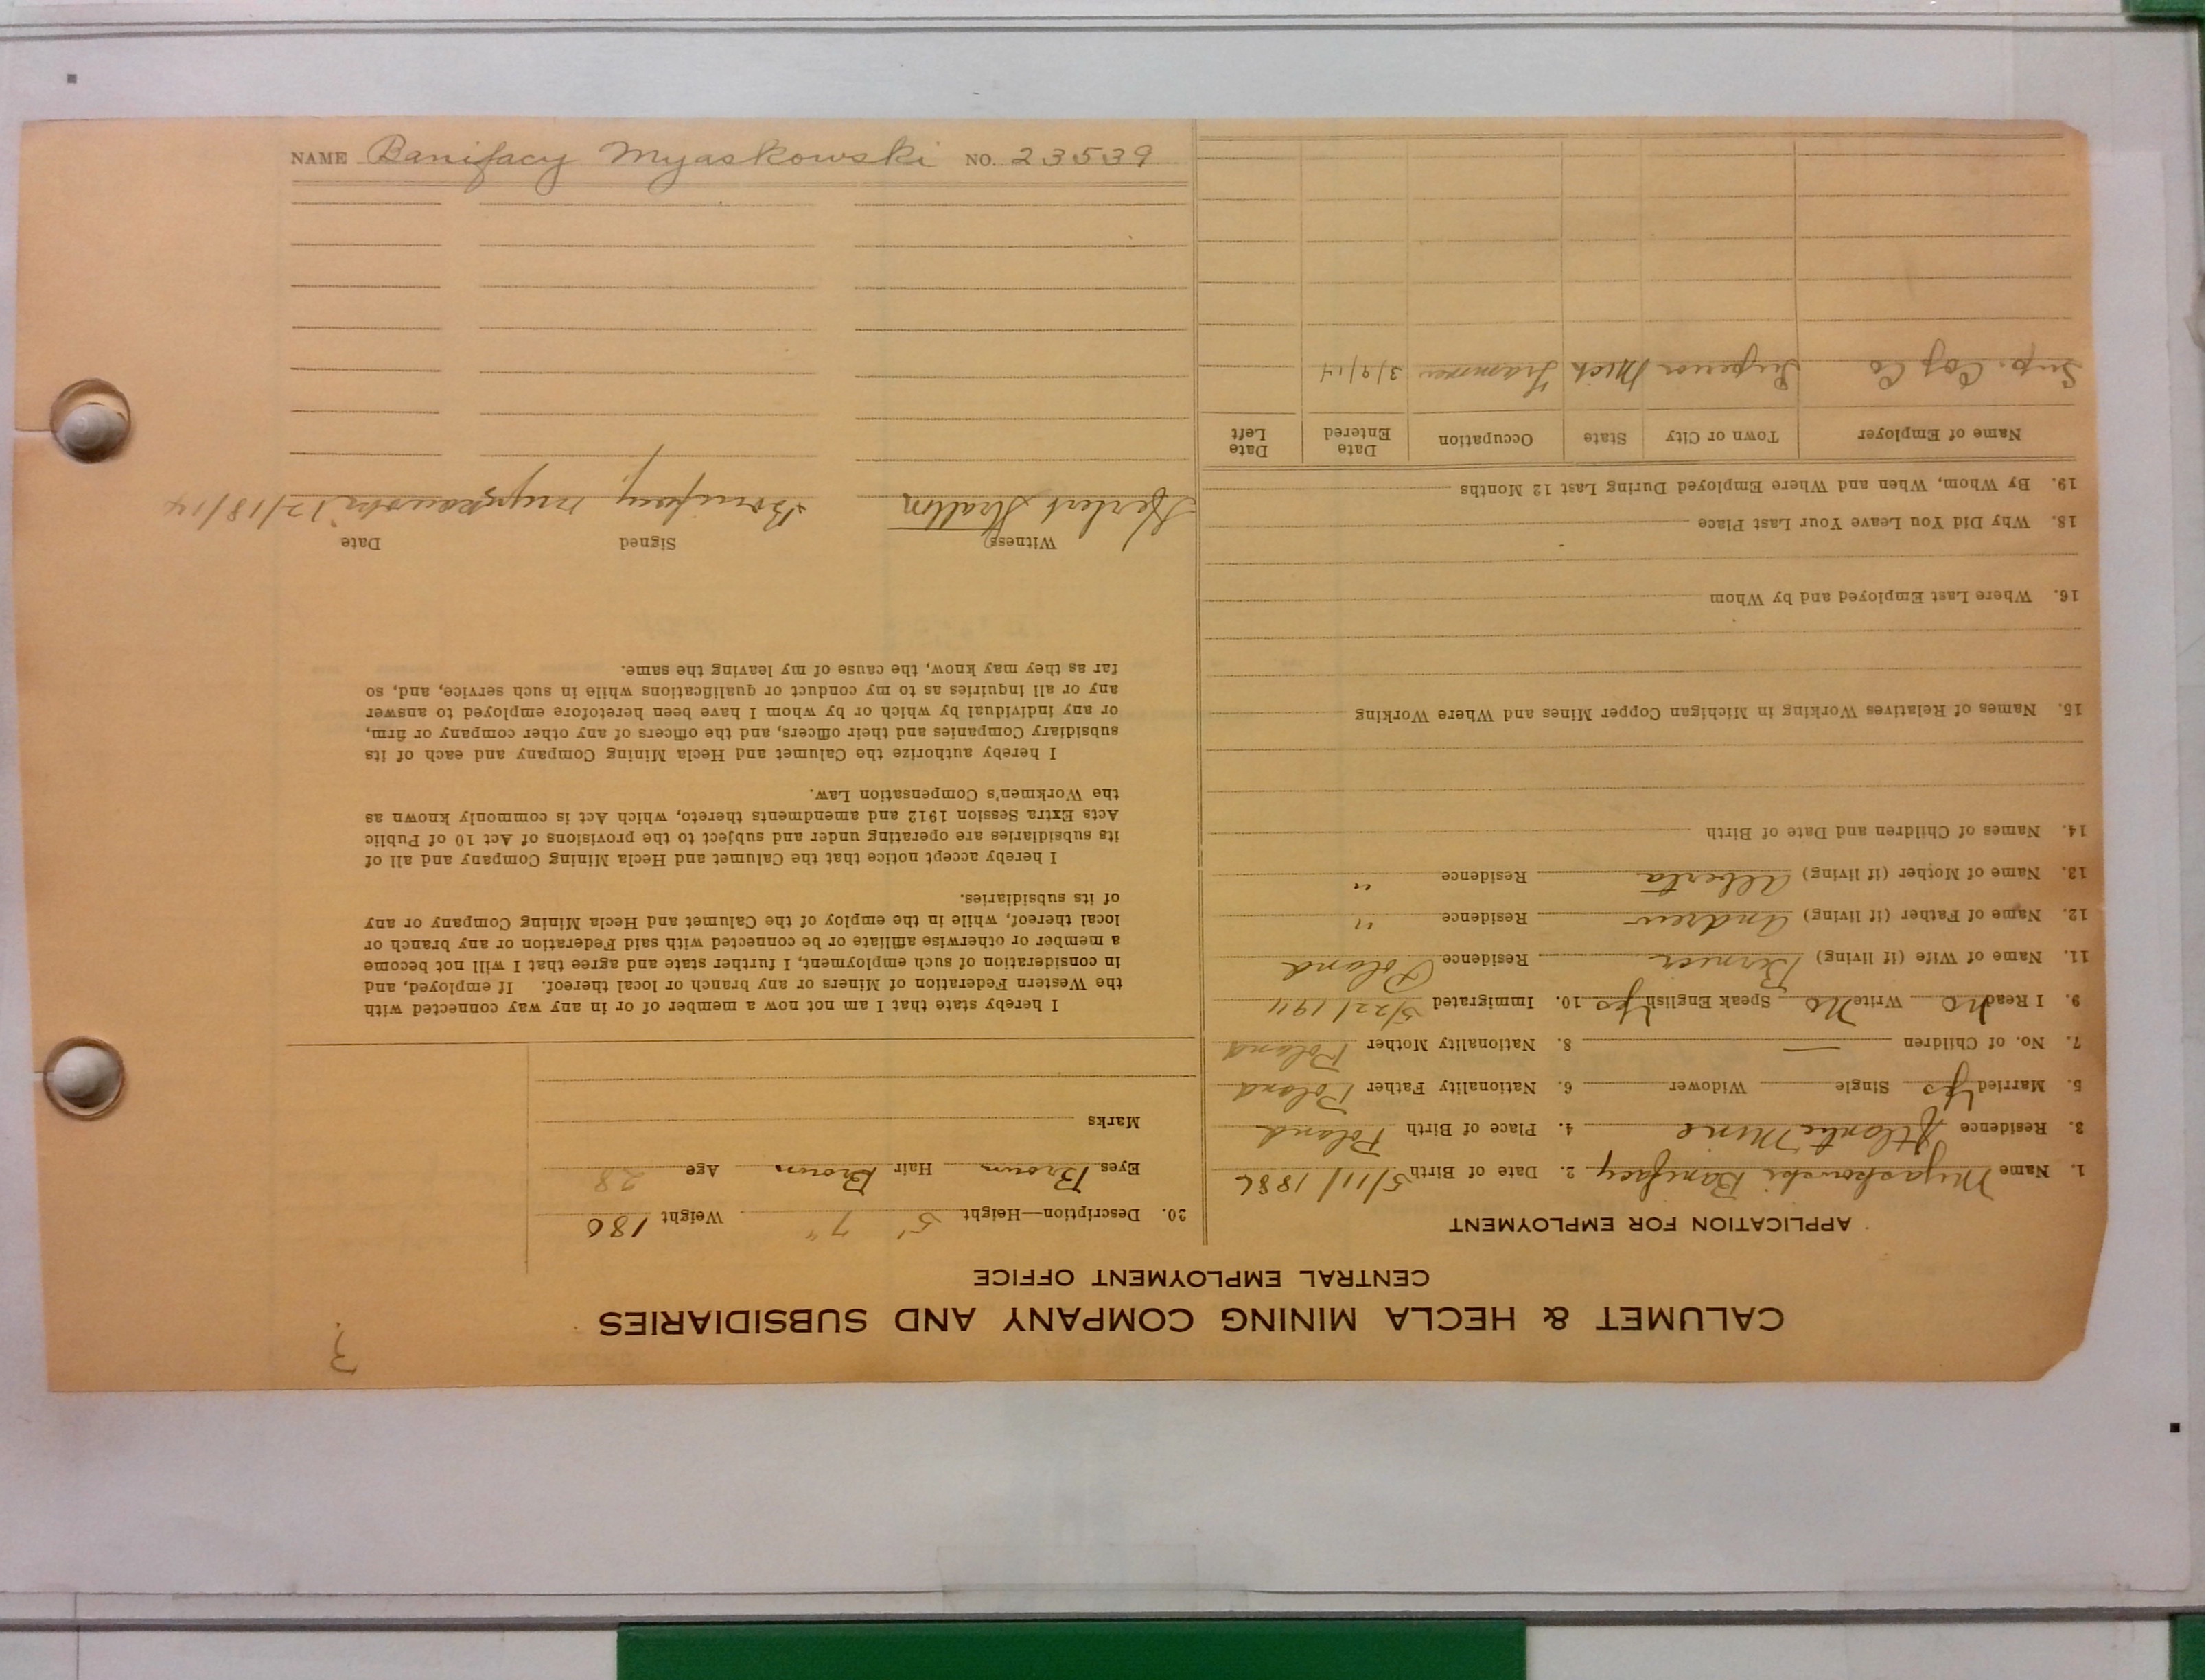 NAME Banifacy Myaskowski NO. 23539
CALUMET & HECLA MINING COMPANY AND SUBSIDIARIES
CENTRAL EMPLOYMENT OFFICE
APPLICATION FOR EMPLOYMENT
1. Name Myaskowski Banifacy 2. Date of Birth 5/11/1886
3. Residence Atlantic Mine 4. Place of Birth Poland
5. Married Yes Single Widower 6. Nationality Father Poland
7. No. of Children — 8. Nationality Mother Poland
9. I Read No Write No Speak English Yes 10. Immigrated 5/22/1911
11. Name of Wife (if living) Residence Poland
12. Name of Father (if living) Andrew Residence "
13. Name of Mother (if living) Alberta Residence "
14. Names of Children and Date of Birth
15. Names of Relatives Working in Michigan Copper Mines and Where Working
16. Where Last Employed and by Whom
18. Why Did You Leave Your Last Place
19. By Whom, When and Where Employed During Last 12 Months
Name of Employer Town or City State Occupation Date Entered Date Left
Sup. Cop Co Superior Mich Trammer 3/9/14
20. Description—Height 5' 7" Weight 180
Eyes Brown Hair Brown Age 28
Marks
I hereby state that I am not now a member of or in any way connected with
the Western Federation of Miners or any branch or local thereof. If employed, and
in consideration of such employment, I further state and agree that I will not become
a member or otherwise affiliate or be connected with said Federation or any branch or
local thereof, while in the employ of the Calumet and Hecla Mining Company or any
of its subsidiaries.
I hereby accept notice that the Calumet and Hecla Mining Company and all of
its subsidiaries are operating under and subject to the provisions of Act 10 of Public
Acts Extra Session 1912 and amendments thereto, which Act is commonly known as
the Workmen's Compensation Law.
I hereby authorize the Calumet and Hecla Mining Company and each of its
subsidiary Companies and their officers, and the officers of any other company or firm,
or any individual by which or by whom I have been heretofore employed to answer
any or all inquiries as to my conduct or qualifications while in such service, and, so
far as they may know, the cause of my leaving the same.
Witness Signed Date
Herbert Stratton Bonifacy Myaskowski 12/18/14